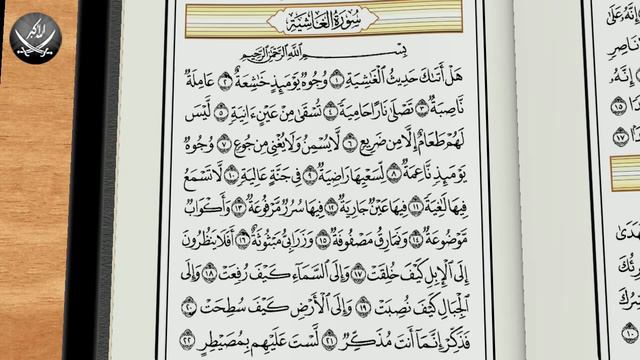 سُورَةُ الغَاشِيَةِ
بِسْمِ اللَّهِ الرَّحْمَٰنِ الرَّحِيمِ
هَلْ أَتَىٰكَ حَدِيثُ الْغَٰشِيَةِ ١ وُجُوهٌ يَوْمَئِذٍ خَٰشِعَةٌ ٢ عَامِلَةٌ
نَّاصِبَةٌ ٣ تَصْلَىٰ نَارًا حَامِيَةً ٤ تُسْقَىٰ مِنْ عَيْنٍ ءَانِيَةٍ ٥ لَّيْسَ
لَهُمْ طَعَامٌ إِلَّا مِن ضَرِيعٍ ٦ لَّا يُسْمِنُ وَلَا يُغْنِي مِن جُوعٍ ٧ وُجُوهٌ
يَوْمَئِذٍ نَّاعِمَةٌ ٨ لِّسَعْيِهَا رَاضِيَةٌ ٩ فِي جَنَّةٍ عَالِيَةٍ ١٠ لَّا تَسْمَعُ
فِيهَا لَٰغِيَةً ١١ فِيهَا عَيْنٌ جَارِيَةٌ ١٢ فِيهَا سُرُرٌ مَّرْفُوعَةٌ ١٣ وَأَكْوَابٌ
مَّوْضُوعَةٌ ١٤ وَنَمَارِقُ مَصْفُوفَةٌ ١٥ وَزَرَابِيُّ مَبْثُوثَةٌ ١٦ أَفَلَا يَنظُرُونَ
إِلَى الْإِبِلِ كَيْفَ خُلِقَتْ ١٧ وَإِلَى السَّمَاءِ كَيْفَ رُفِعَتْ ١٨ وَإِلَى
الْجِبَالِ كَيْفَ نُصِبَتْ ١٩ وَإِلَى الْأَرْضِ كَيْفَ سُطِحَتْ ٢٠
فَذَكِّرْ إِنَّمَا أَنتَ مُذَكِّرٌ ٢١ لَّسْتَ عَلَيْهِم بِمُصَيْطِرٍ ٢٢